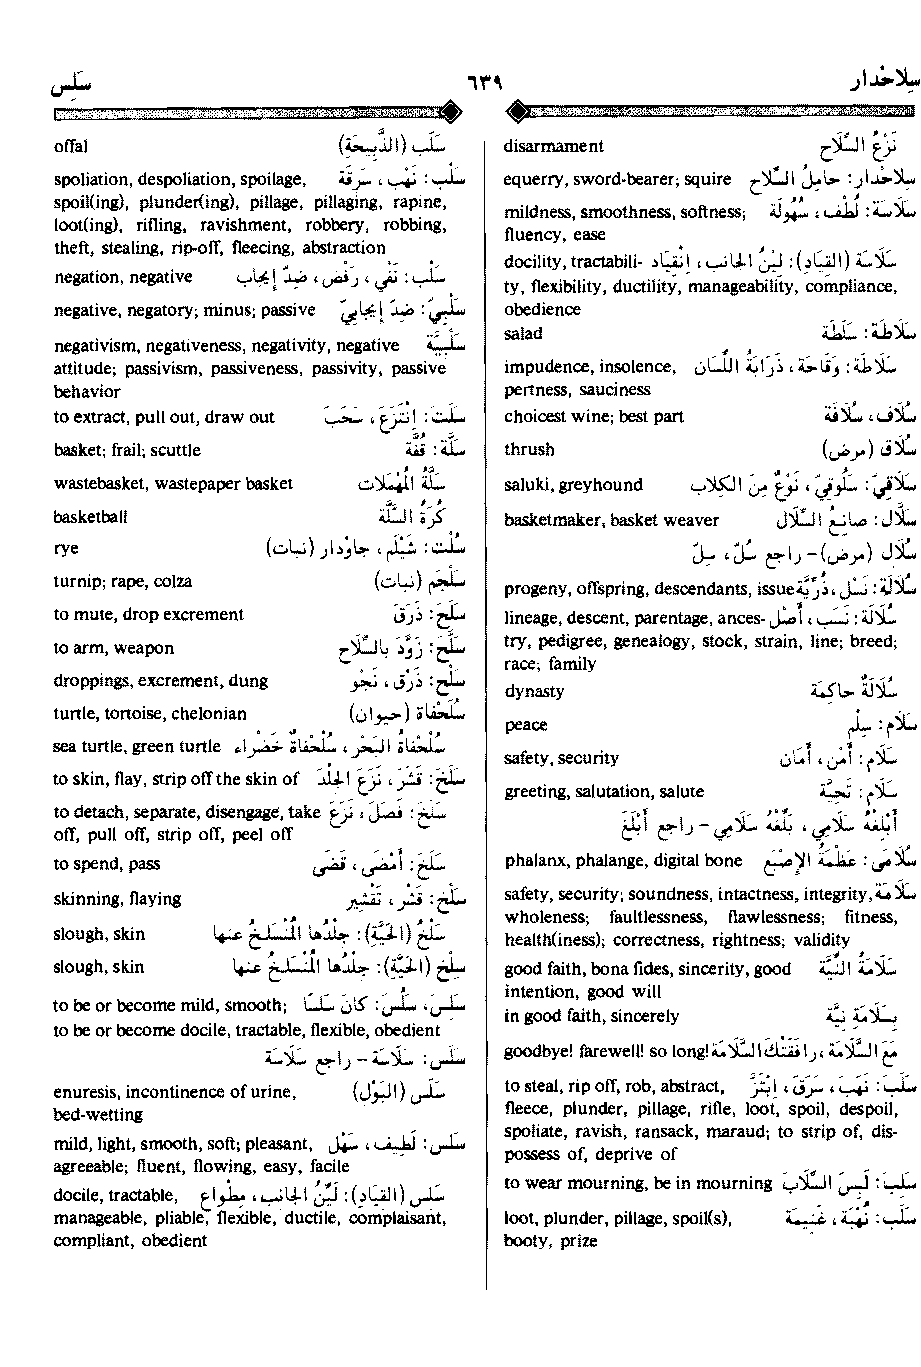 سِلاَحْدار ٦٣٩ سَلِس
disarmament نَزْعُ السِّلَاح
equerry, sword-bearer; squire سِلَاحْدَار: حَامِلُ السِّلَاح
mildness, smoothness, softness; سَلَاسَة: لُطْف، سُهُولَة
fluency, ease
docility, tractabili- سَلَاسَة (القِيَادِ): لِيْنُ الجَانِب، اِنْقِيَاد
ty, flexibility, ductility, manageability, compliance,
obedience
salad سَلَاطَة: سَلَطَة
impudence, insolence, سَلَاطَة: وَقَاحَة، ذَرَابَةُ اللِّسَان
pertness, sauciness
choicest wine; best part سُلَاف، سُلَافَة
thrush سُلَاق (مرض)
saluki, greyhound سَلَاقِيّ: سَلُوقِيّ، نَوْعٌ مِنَ الكِلَاب
basketmaker, basket weaver سَلَّال: صَانِعُ السِّلَال
سُلَال (مرض) – راجع سُلّ، سِلّ
progeny, offspring, descendants, issue سُلَالَة: نَسْل، ذُرِّيَّة
lineage, descent, parentage, ances- سُلَالَة: نَسَب، أَصْل
try, pedigree, genealogy, stock, strain, line; breed;
race; family
dynasty سُلَالَةٌ حَاكِمَة
peace سَلَام: سِلْم
safety, security سَلَام: أَمْن، أَمَان
greeting, salutation, salute سَلَام: تَحِيَّة
أَبْلِغْهُ سَلَامِي، بَلِّغْهُ سَلَامِي – راجع أَبْلَغَ
phalanx, phalange, digital bone سُلَامَى: عَظْمَةُ الإِصْبَع
safety, security; soundness, intactness, integrity, سَلَامَة
wholeness; faultlessness, flawlessness; fitness,
health(iness); correctness, rightness; validity
good faith, bona fides, sincerity, good سَلَامَةُ النِّيَّة
intention, good will
in good faith, sincerely بِسَلَامَةِ نِيَّة
goodbye! farewell! so long! مَعَ السَّلَامَة، رَافَقَتْكَ السَّلَامَة
to steal, rip off, rob, abstract, سَلَبَ: نَهَبَ، سَرَقَ، اِبْتَزَّ
fleece, plunder, pillage, rifle, loot, spoil, despoil,
spoliate, ravish, ransack, maraud; to strip of, dis-
possess of, deprive of
to wear mourning, be in mourning سَلَبَتْ: لَبِسَتِ السِّلَابَ
loot, plunder, pillage, spoil(s), سَلَب: نُهْبَة، غَنِيمَة
booty, prize
offal سَلَب (الذَّبِيحَة)
spoliation, despoliation, spoilage, سَلْب: نَهْب، سَرِقَة
spoil(ing), plunder(ing), pillage, pillaging, rapine,
loot(ing), rifling, ravishment, robbery, robbing,
theft, stealing, rip-off, fleecing, abstraction
negation, negative سَلْب: نَفْي، رَفْض، ضِدّ إيجَاب
negative, negatory; minus; passive سَلْبِيّ: ضِدّ إيجَابِيّ
negativism, negativeness, negativity, negative سَلْبِيَّة
attitude; passivism, passiveness, passivity, passive
behavior
to extract, pull out, draw out سَلَتَ: اِنْتَزَعَ، سَحَبَ
basket; frail; scuttle سَلَّة: قُفَّة
wastebasket, wastepaper basket سَلَّةُ المُهْمَلَات
basketball كُرَةُ السَّلَّة
rye سُلْت: شَيْلَم، جَاوْدَار (نبات)
turnip; rape, colza سَلْجَم (نبات)
to mute, drop excrement سَلَحَ: ذَرَقَ
to arm, weapon سَلَّحَ: زَوَّدَ بِالسِّلَاح
droppings, excrement, dung سَلْح: ذَرْق، نَجْو
turtle, tortoise, chelonian سُلَحْفَاة (حيوان)
sea turtle, green turtle سُلَحْفَاةُ البَحْر، سُلَحْفَاةٌ خَضْرَاء
to skin, flay, strip off the skin of سَلَخَ: قَشَرَ، نَزَعَ الجِلْدَ
to detach, separate, disengage, take سَلَخَ: فَصَلَ، نَزَعَ
off, pull off, strip off, peel off
to spend, pass سَلَخَ: أَمْضَى، قَضَى
skinning, flaying سَلْخ: قَشْر، تَقْشِير
slough, skin سَلْخُ (الحَيَّةِ): جِلْدُهَا المُنْسَلِخُ عنها
slough, skin سِلْخ (الحَيَّةِ): جِلْدُهَا المُنْسَلِخُ عنها
to be or become mild, smooth; سَلِسَ، سَلُسَ: كَانَ سَلِسًا
to be or become docile, tractable, flexible, obedient
سَلَس: سَلَاسَة – راجع سَلَاسَة
enuresis, incontinence of urine, سَلَس (البَوْل)
bed-wetting
mild, light, smooth, soft; pleasant, سَلِس: لَطِيف، سَهْل
agreeable; fluent, flowing, easy, facile
docile, tractable, سَلِس (القِيَادِ): لَيِّنُ الجَانِب، مِطْوَاع
manageable, pliable, flexible, ductile, complaisant,
compliant, obedient